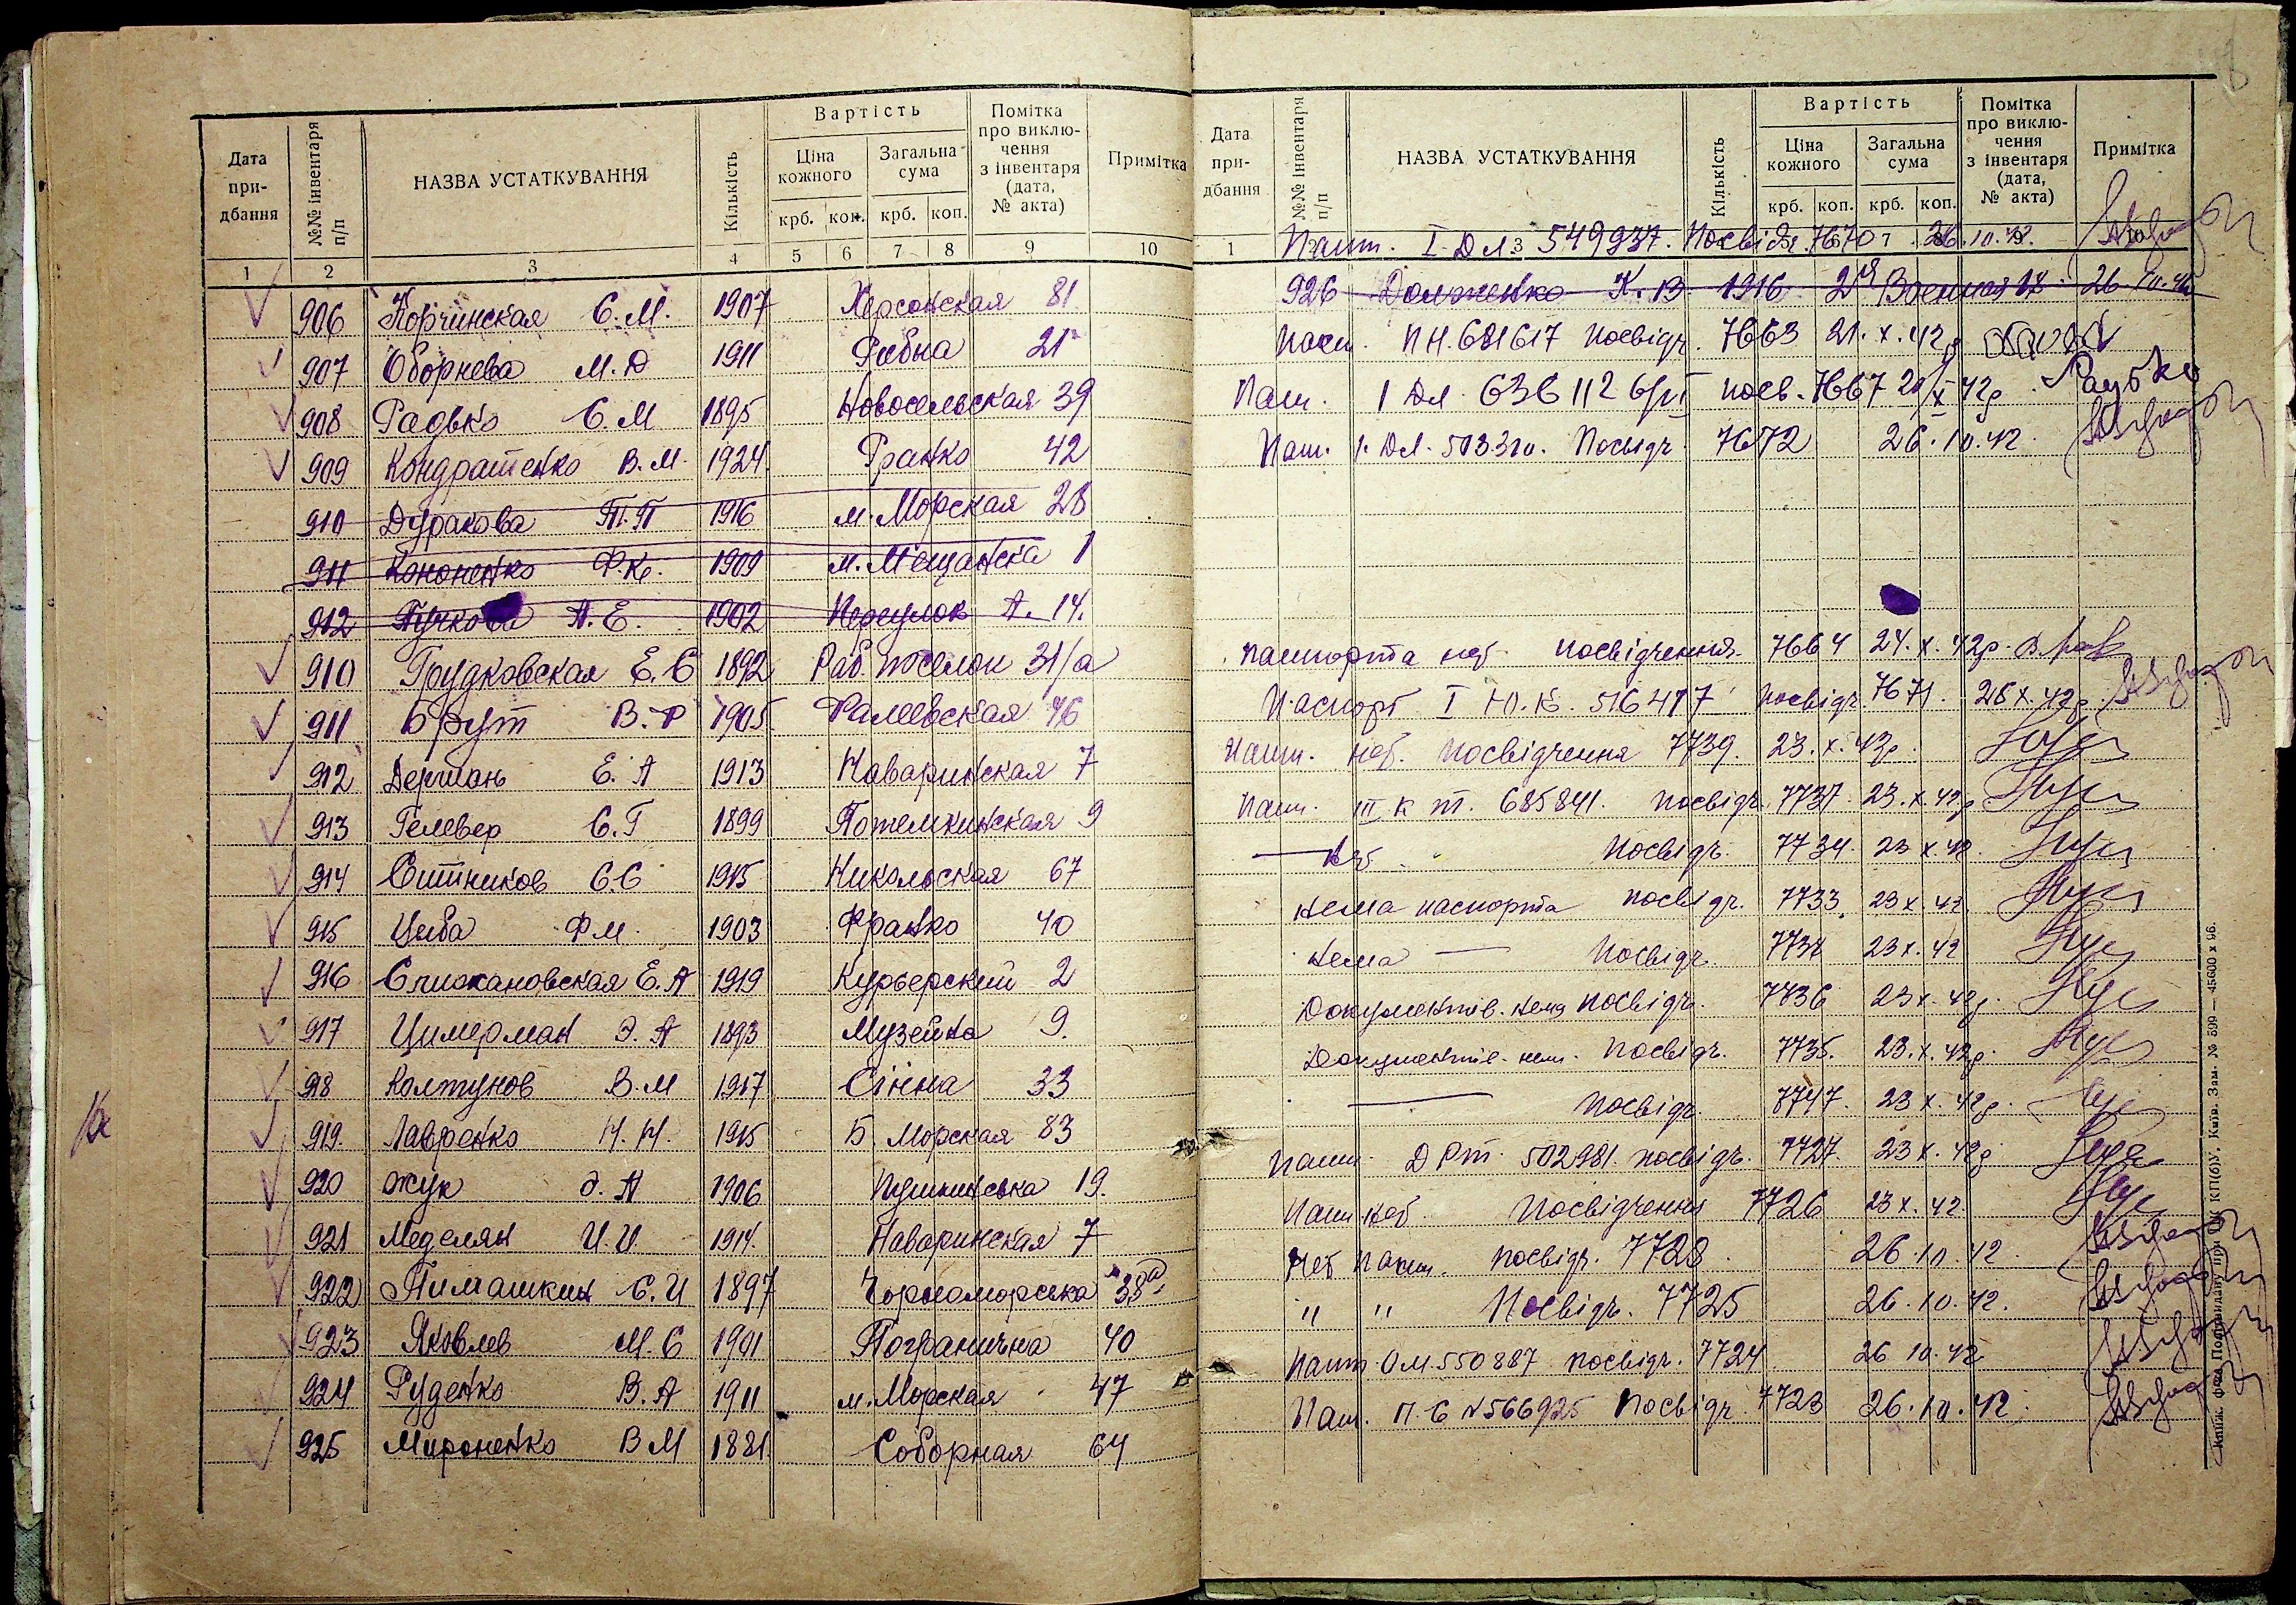 Дата при- дбання
№№ інвентаря п/п
НАЗВА УСТАТКУВАННЯ
Кількість
Вартість
Ціна кожного
Загальна сума
крб. коп. крб. коп.
Помітка про виклю- чення з інвентаря (дата, № акта)
Примітка
1 2 3 4 5 6 7 8 9 10
906 Корчинская С. М. 1907 Херсонская 81
907 Оборнева М. Д 1911 Рибна 21
908 Радько С. М 1895 Новосельская 39
909 Кондратенко В. М. 1924 Франко 42
910 Дуракова П. П 1916 м. Морская 28
911 Кононенко Ф. К. 1909 м. Мещанска 1
912 Пучкова А. Е. 1902 Переулок А. 14.
910 Грудковская Е. С 1892 Раб. поселок 31/а
911 Брут В. Р 1905 Фалеевская 76
912 Держань Е. А 1913 Наваринская 7
913 Гелевер С. Г 1899 Потемкинская 9
914 Ситников С. С 1915 Никольская 67
915 Циба Ф. М. 1903 Франко 40
916 Спижановская Е. А 1919 Курьерский 2
917 Цимерман Э. А 1893 Музейна 9.
918 Колтунов В. М 1917 Сінна 33
919. Лавренко Н. Н. 1915 Б. Морская 83
920 Жук д. А 1906 Пушкинська 19.
921 Меделян И. И 1914. Наваринская 7
922 Тимашкин С. И 1897 Чорноморська 35а
923 Яковлев М. С 1901 Погранична 40
924 Руденко В. А 1911 м. Морская 47
925 Мироненко В М 1881. Соборная 64
Дата при- дбання
№№ інвентаря п/п
НАЗВА УСТАТКУВАННЯ
Кількість
Вартість
Ціна кожного
Загальна сума
крб. коп. крб. коп.
Помітка про виклю- чення з інвентаря (дата, № акта)
Примітка
1 Пашп. I. Дл 549937. Посвідч. 7670 26. 10. 42.
926 Долженко К. В 1916 2я Военная 26 10. 42
Пасп. ПН. 681617 посвідч. 7663 21. X. 42р
Паш. I Дл 636112 посв. 7667 X 42р. Радько
Паш. I. Дл. 503310. Посвідч. 7672 26. 10. 42.
пашпорта нет посвідчення 7664 24. X. 42р.
Паспорт I Ю. К. 516417 посвідч. 7671. 26 X. 42р.
Пашп. нет. посвідчення 7739. 23. X. 42р.
Паш. III к т. 685841. посвідч. 7737 23. X. 42р
— нет Посвідч. 7734 23 X. 42.
нема паспорта посвідч. 7733. 23 X 42.
нема — Посвідч. 23 X. 42
Документів. нема посвідч. 7736 23 X. 42р.
Документів. нем. посвідч. 7735. 23. X. 42р.
— посвідч. 7747. 23 X. 42р.
Пашп. Д Рт. 502981. посвідч. 7727. 23 X. 42р
Паш. нет Посвідчення 7726 23 X. 42.
Нет пашп. посвідч. 7728 26. 10. 42.
" " Посвідч. 7725 26. 10. 42.
Пашп. ОМ. 550887 посвідч. 7724 26 10. 42
Паш. П. С N 566925 посвідч 7723 26. 10. 42.